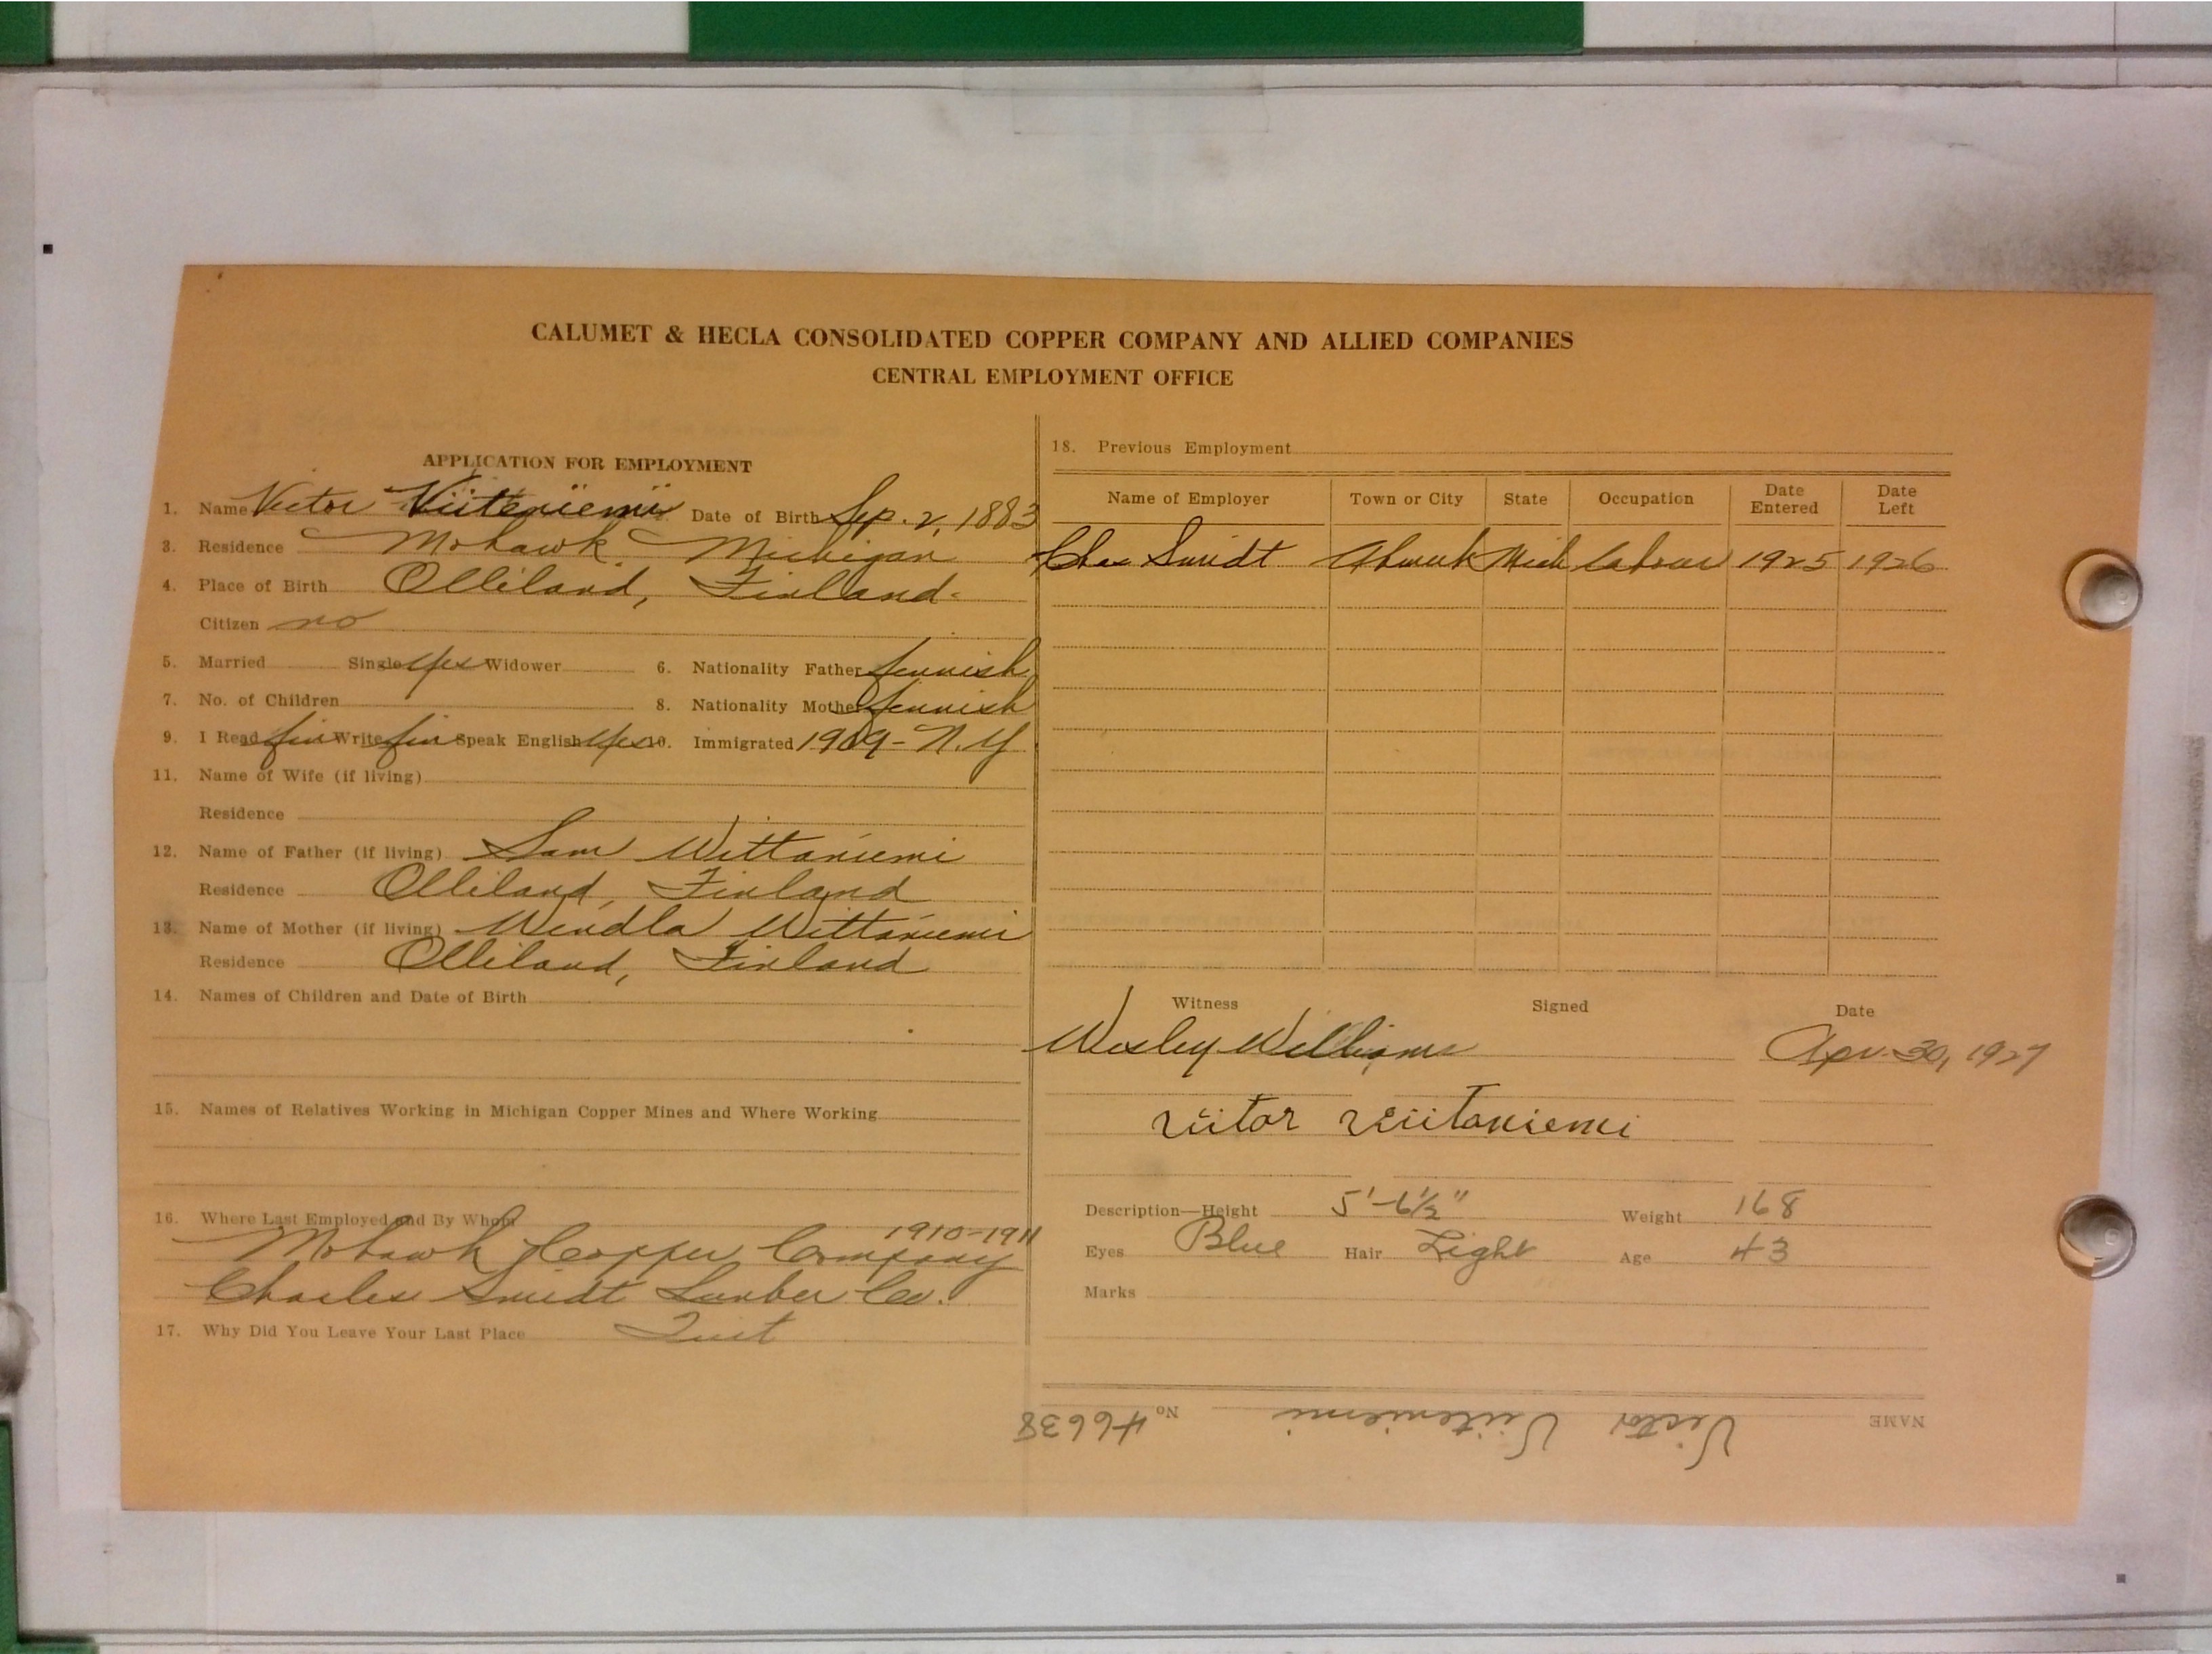 CALUMET & HECLA CONSOLIDATED COPPER COMPANY AND ALLIED COMPANIES
CENTRAL EMPLOYMENT OFFICE
APPLICATION FOR EMPLOYMENT
1. Name Victor Viiteniemi Date of Birth Sep. 2, 1883
3. Residence Mohawk Michigan
4. Place of Birth Olliland, Finland.
Citizen no
5. Married Single Yes Widower 6. Nationality Father finnish
7. No. of Children 8. Nationality Mother finnish
9. I Read fin Write fin Speak English Yes 10. Immigrated 1909 - N.Y.
11. Name of Wife (if living)
Residence
12. Name of Father (if living) Sam Wittaniemi
Residence Olliland, Finland
13. Name of Mother (if living) Wendla Wittaniemi
Residence Olliland, Finland
14. Names of Children and Date of Birth
15. Names of Relatives Working in Michigan Copper Mines and Where Working
16. Where Last Employed and By Whom
Mohawk Copper Company 1910-1911
Charles Smidt Lumber Co.
17. Why Did You Leave Your Last Place Quit
18. Previous Employment
Name of Employer Town or City State Occupation Date Entered Date Left
Chas Smidt Ahmeek Mich labour 1925 1926
Witness Signed Date
Wesley Williams Apr. 30, 1927
Viitor Viitaniemi
Description—Height 5'-6½" Weight 168
Eyes Blue Hair Light Age 43
Marks
NAME Victor Viiteniemi No 46638